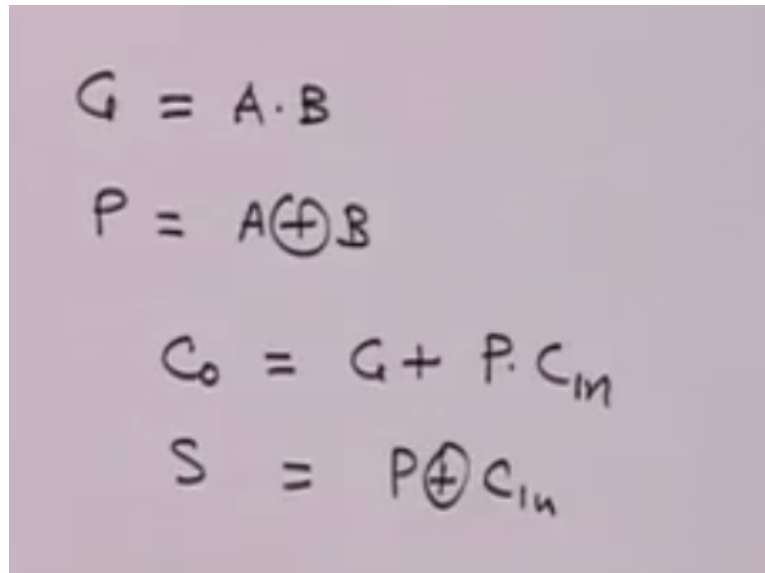 G = A·B
P = A⊕B
C₀ = G + P·Cᵢₙ
S = P⊕Cᵢₙ